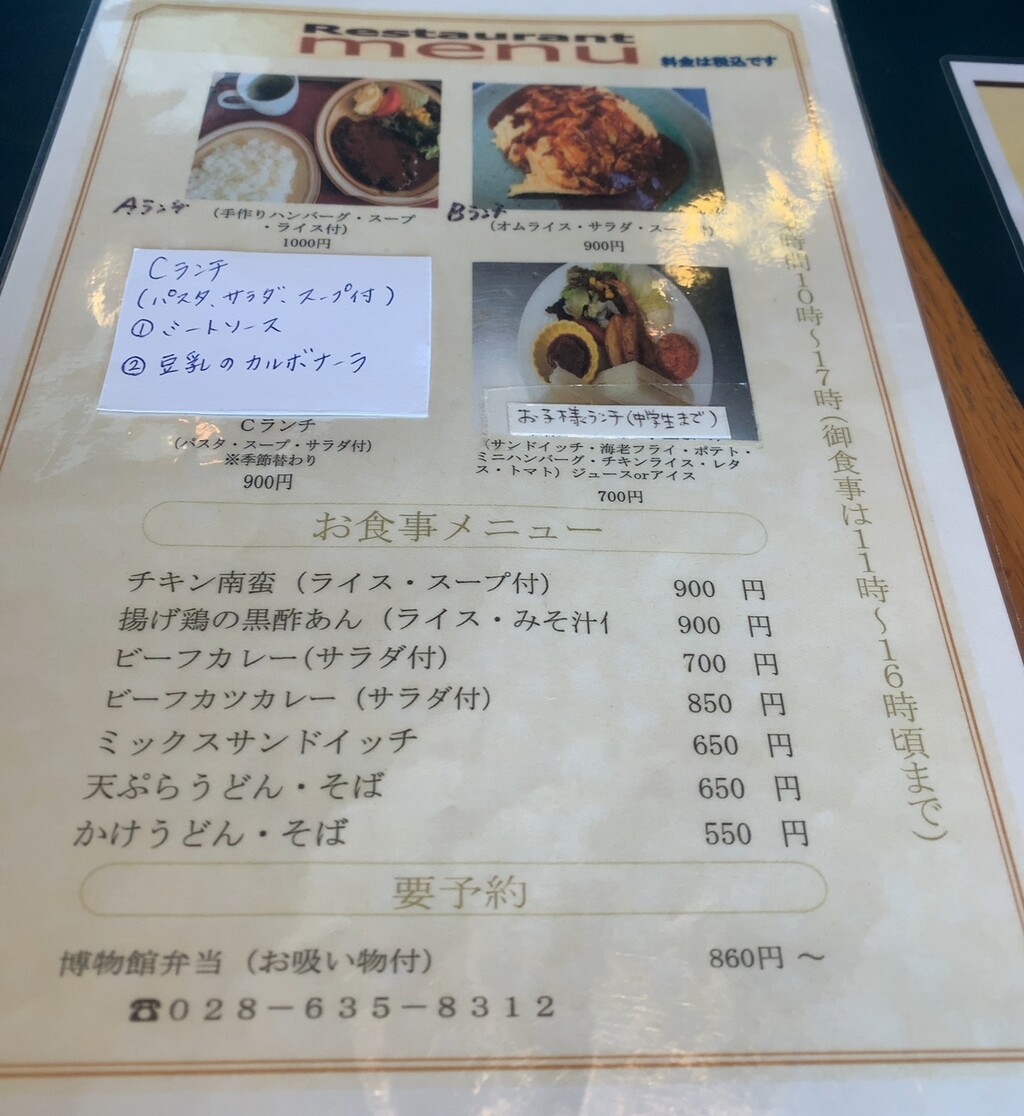 Restaurant
menu
料金は税込です
Aランチ
(手作りハンバーグ・スープ
・ライス付)
1000円
Bランチ
(オムライス・サラダ・スー
900円
Cランチ
(パスタ、サラダ、スープ付)
① ミートソース
② 豆乳のカルボナーラ
Cランチ
(パスタ・スープ・サラダ付)
※季節替わり
900円
お子様ランチ(中学生まで)
(サンドイッチ・海老フライ・ポテト・
ミニハンバーグ・チキンライス・レタ
ス・トマト) ジュースorアイス
700円
お食事メニュー
チキン南蛮 (ライス・スープ付) 900 円
揚げ鶏の黒酢あん (ライス・みそ汁 900 円
ビーフカレー(サラダ付) 700 円
ビーフカツカレー (サラダ付) 850 円
ミックスサンドイッチ 650 円
天ぷらうどん・そば 650 円
かけうどん・そば 550 円
要予約
博物館弁当 (お吸い物付) 860円 〜
☎028−635−8312
時間10時〜17時(御食事は11時〜16時頃まで)